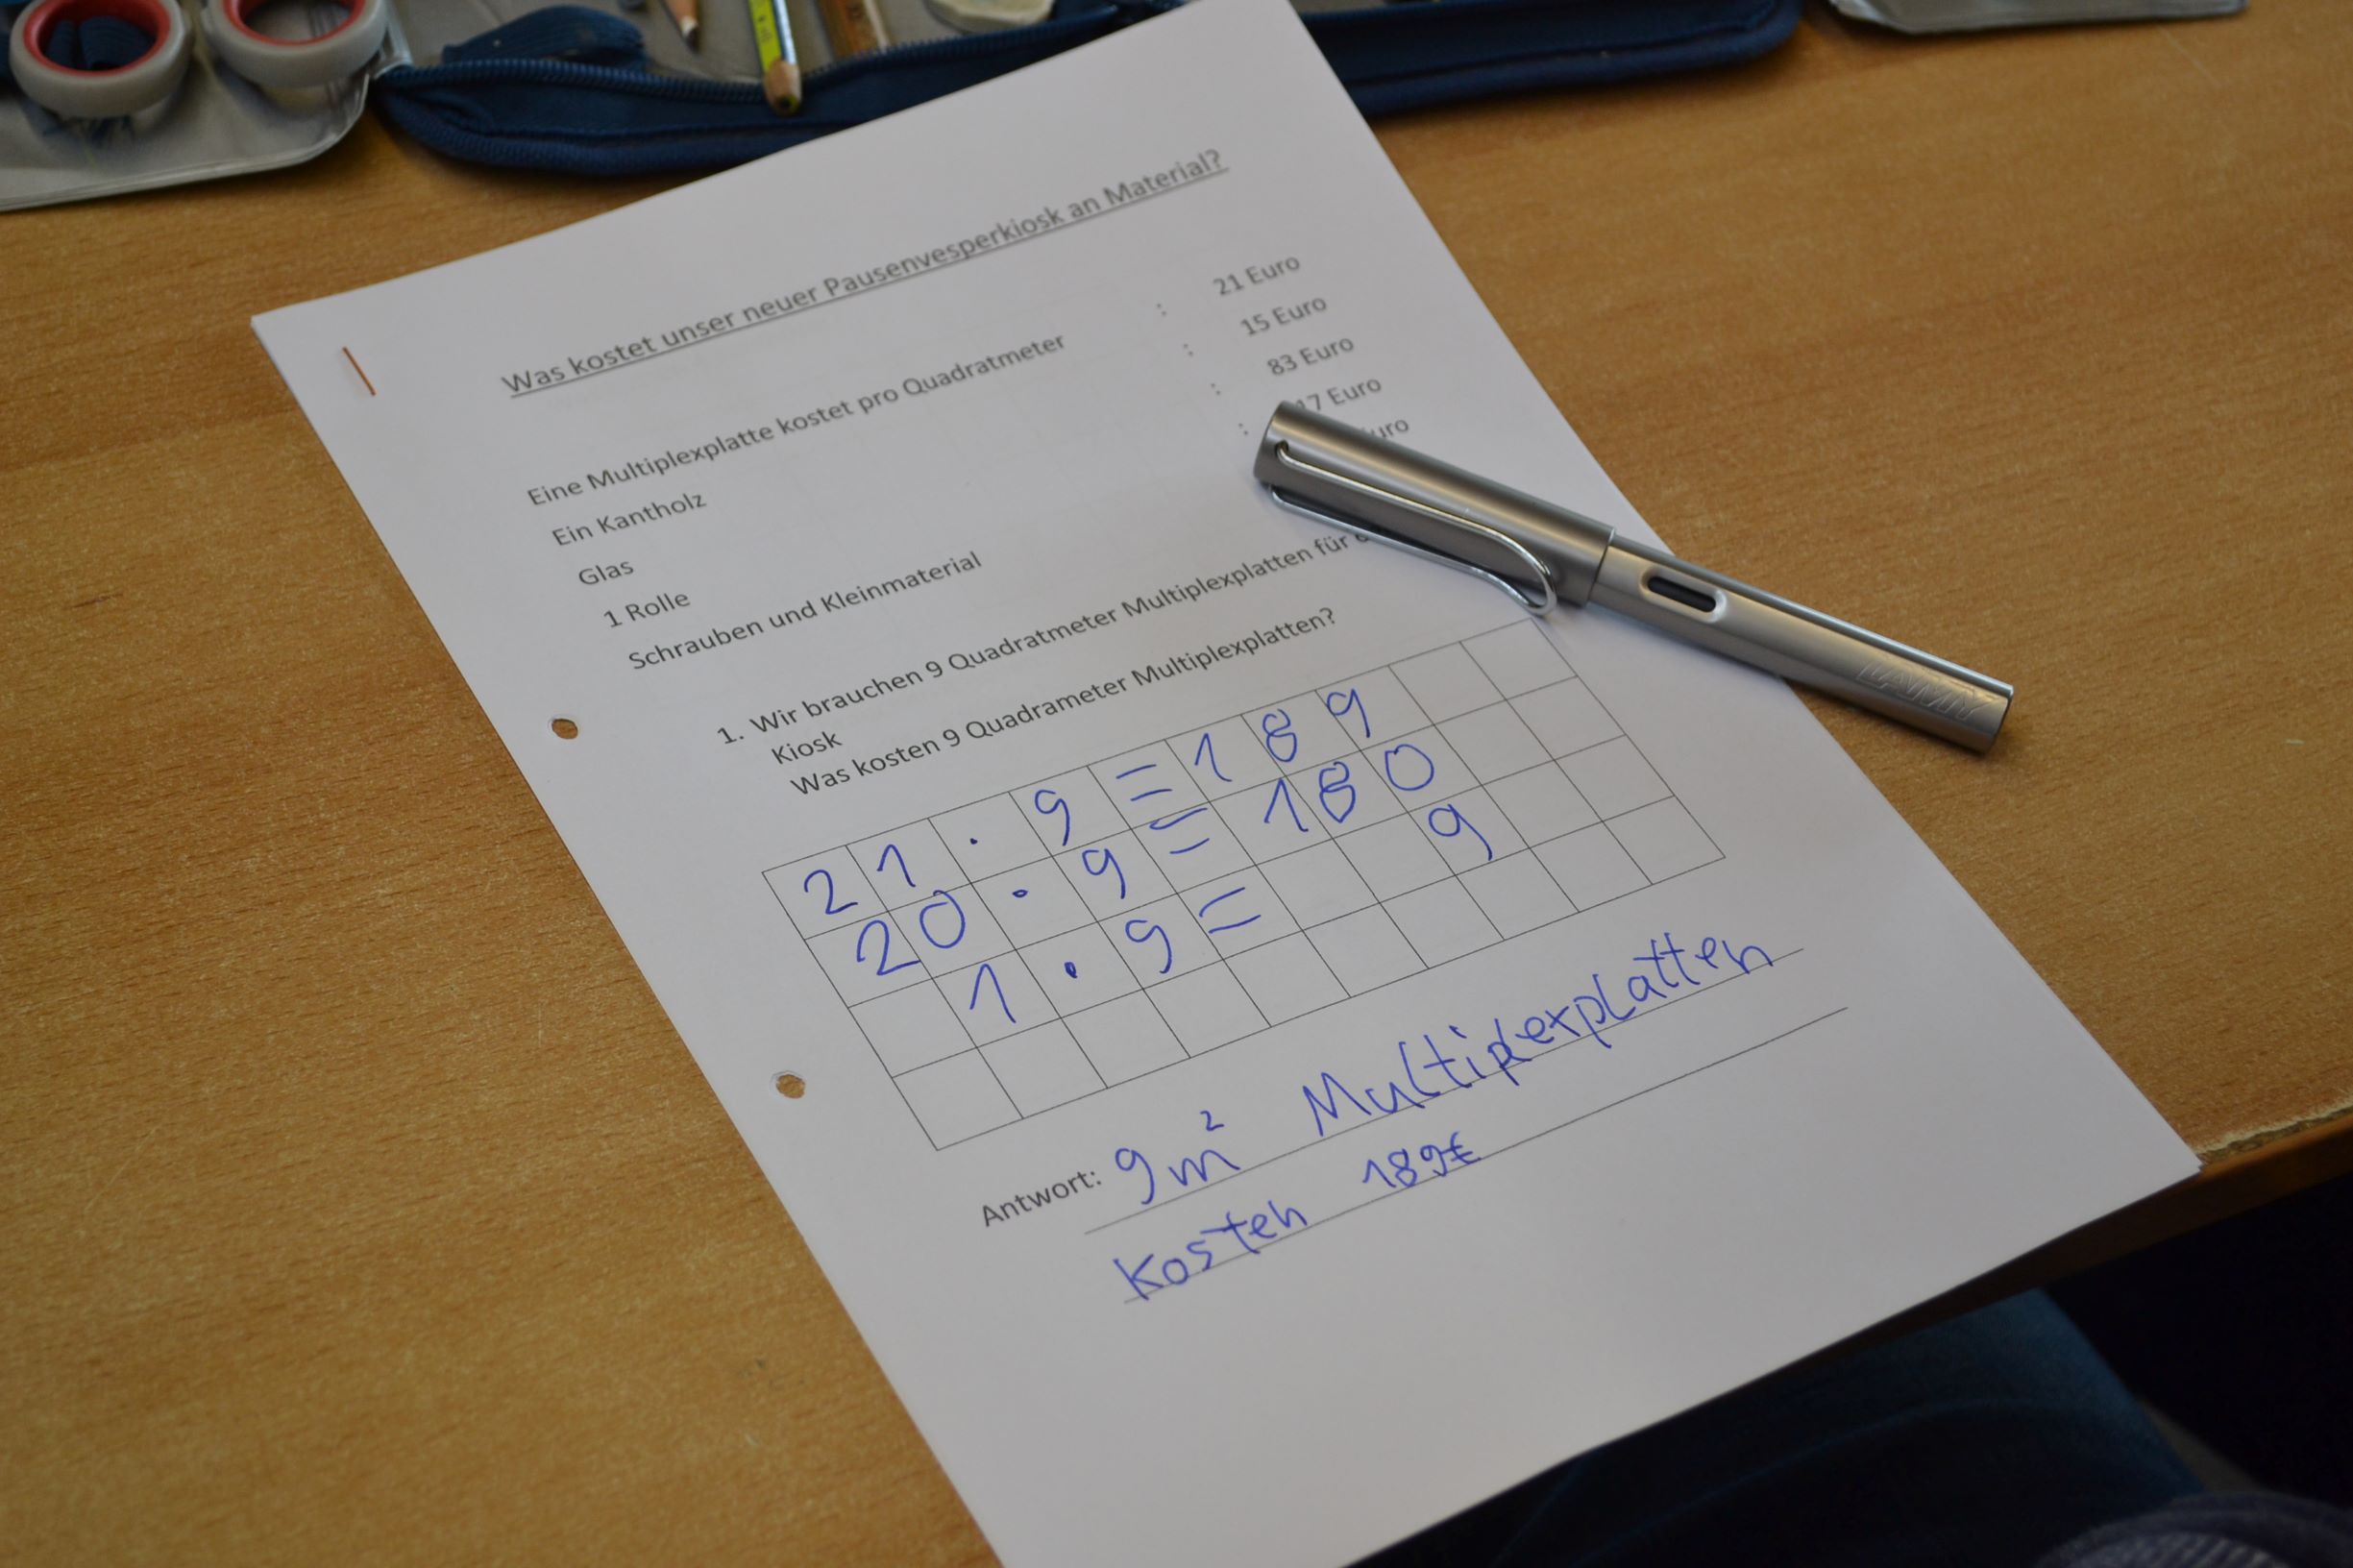 Was kostet unser neuer Pausenvesperkiosk an Material?
Eine Multiplexplatte kostet pro Quadratmeter : 21 Euro
Ein Kantholz : 15 Euro
Glas : 83 Euro
1 Rolle : 17 Euro
Schrauben und Kleinmaterial
1. Wir brauchen 9 Quadratmeter Multiplexplatten für
Kiosk
Was kosten 9 Quadrameter Multiplexplatten?
21 · 9 = 189
20 · 9 = 180
1 · 9 = 9
Antwort: 9m² Multiplexplatten
kosten 189€
LAMY